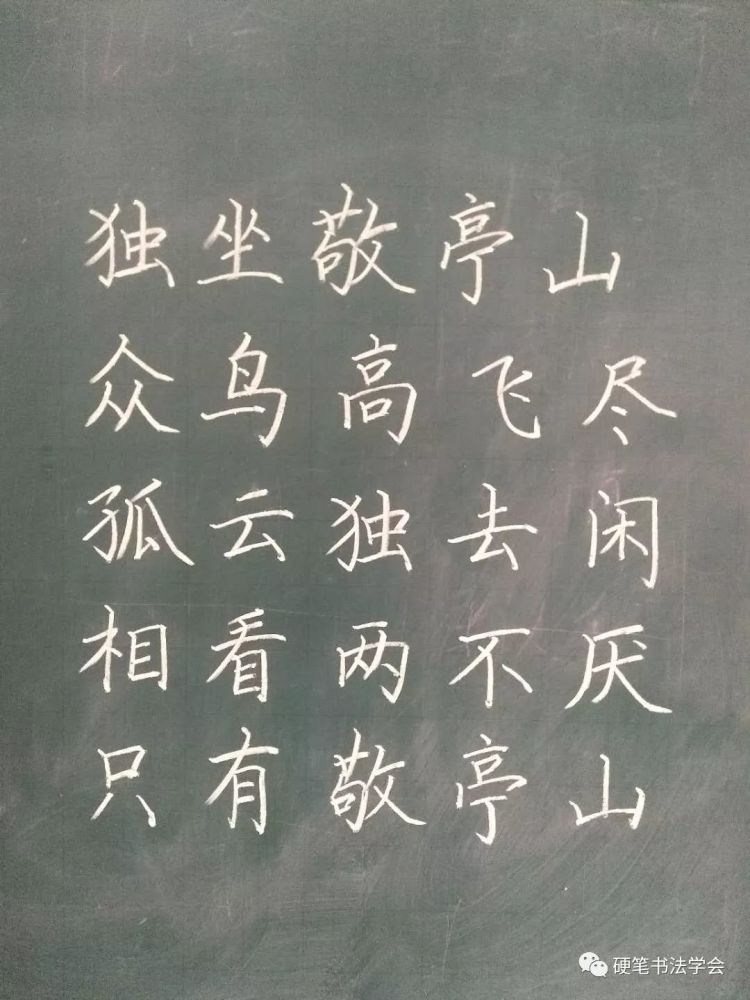 独坐敬亭山
众鸟高飞尽
孤云独去闲
相看两不厌
只有敬亭山
硬笔书法学会